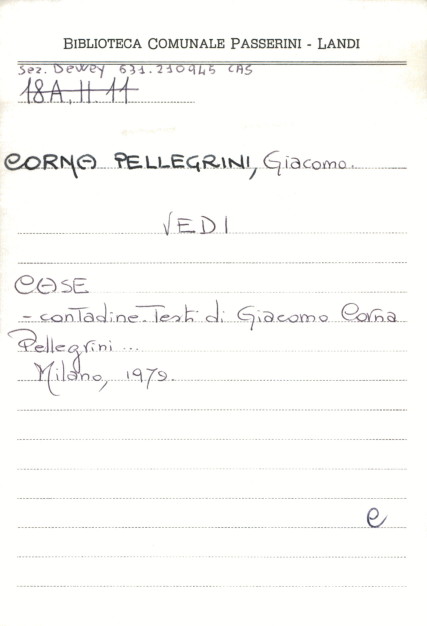 BIBLIOTECA COMUNALE PASSERINI - LANDI
Sez. Dewey 631.210945 CAS
18A. H. 11
CORNA PELLEGRINI, Giacomo.
VEDI
CASE
- contadine. Testi di Giacomo Corna
Pellegrini ...
Milano, 1979.
e